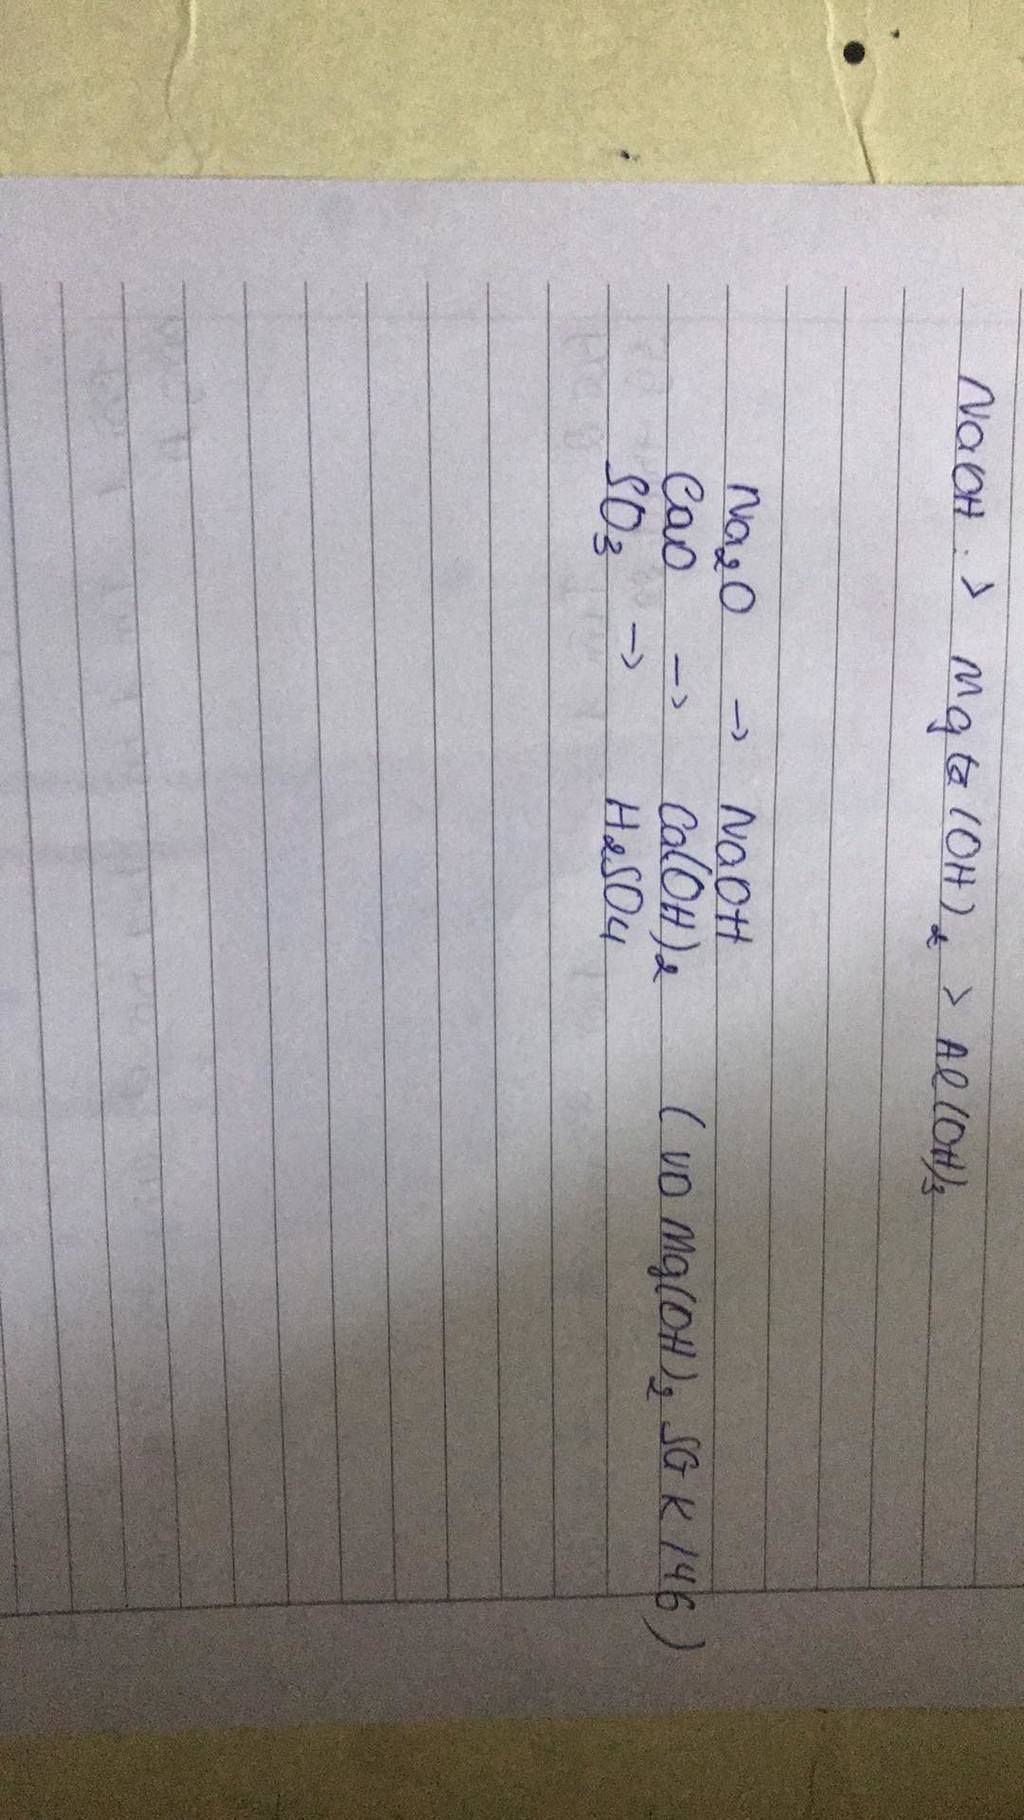 NaOH : > Mg (OH)₂ > Al(OH)₃
Na₂O → NaOH
CaO → Ca(OH)₂ ( VD Mg(OH)₂ SGK 146)
SO₃ → H₂SO₄